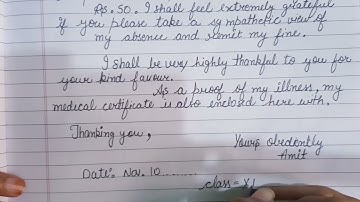 Rs. 50. I shall feel extremely grateful
if you please take a sympathetic view of
my absence and remit my fine.
I shall be very highly thankful to you for
your kind favour.
As a proof of my illness, my
medical certificate is also enclosed here with.
Thanking you,
Yours obediently
Amit
Date:- Nov. 10..........
class = XI